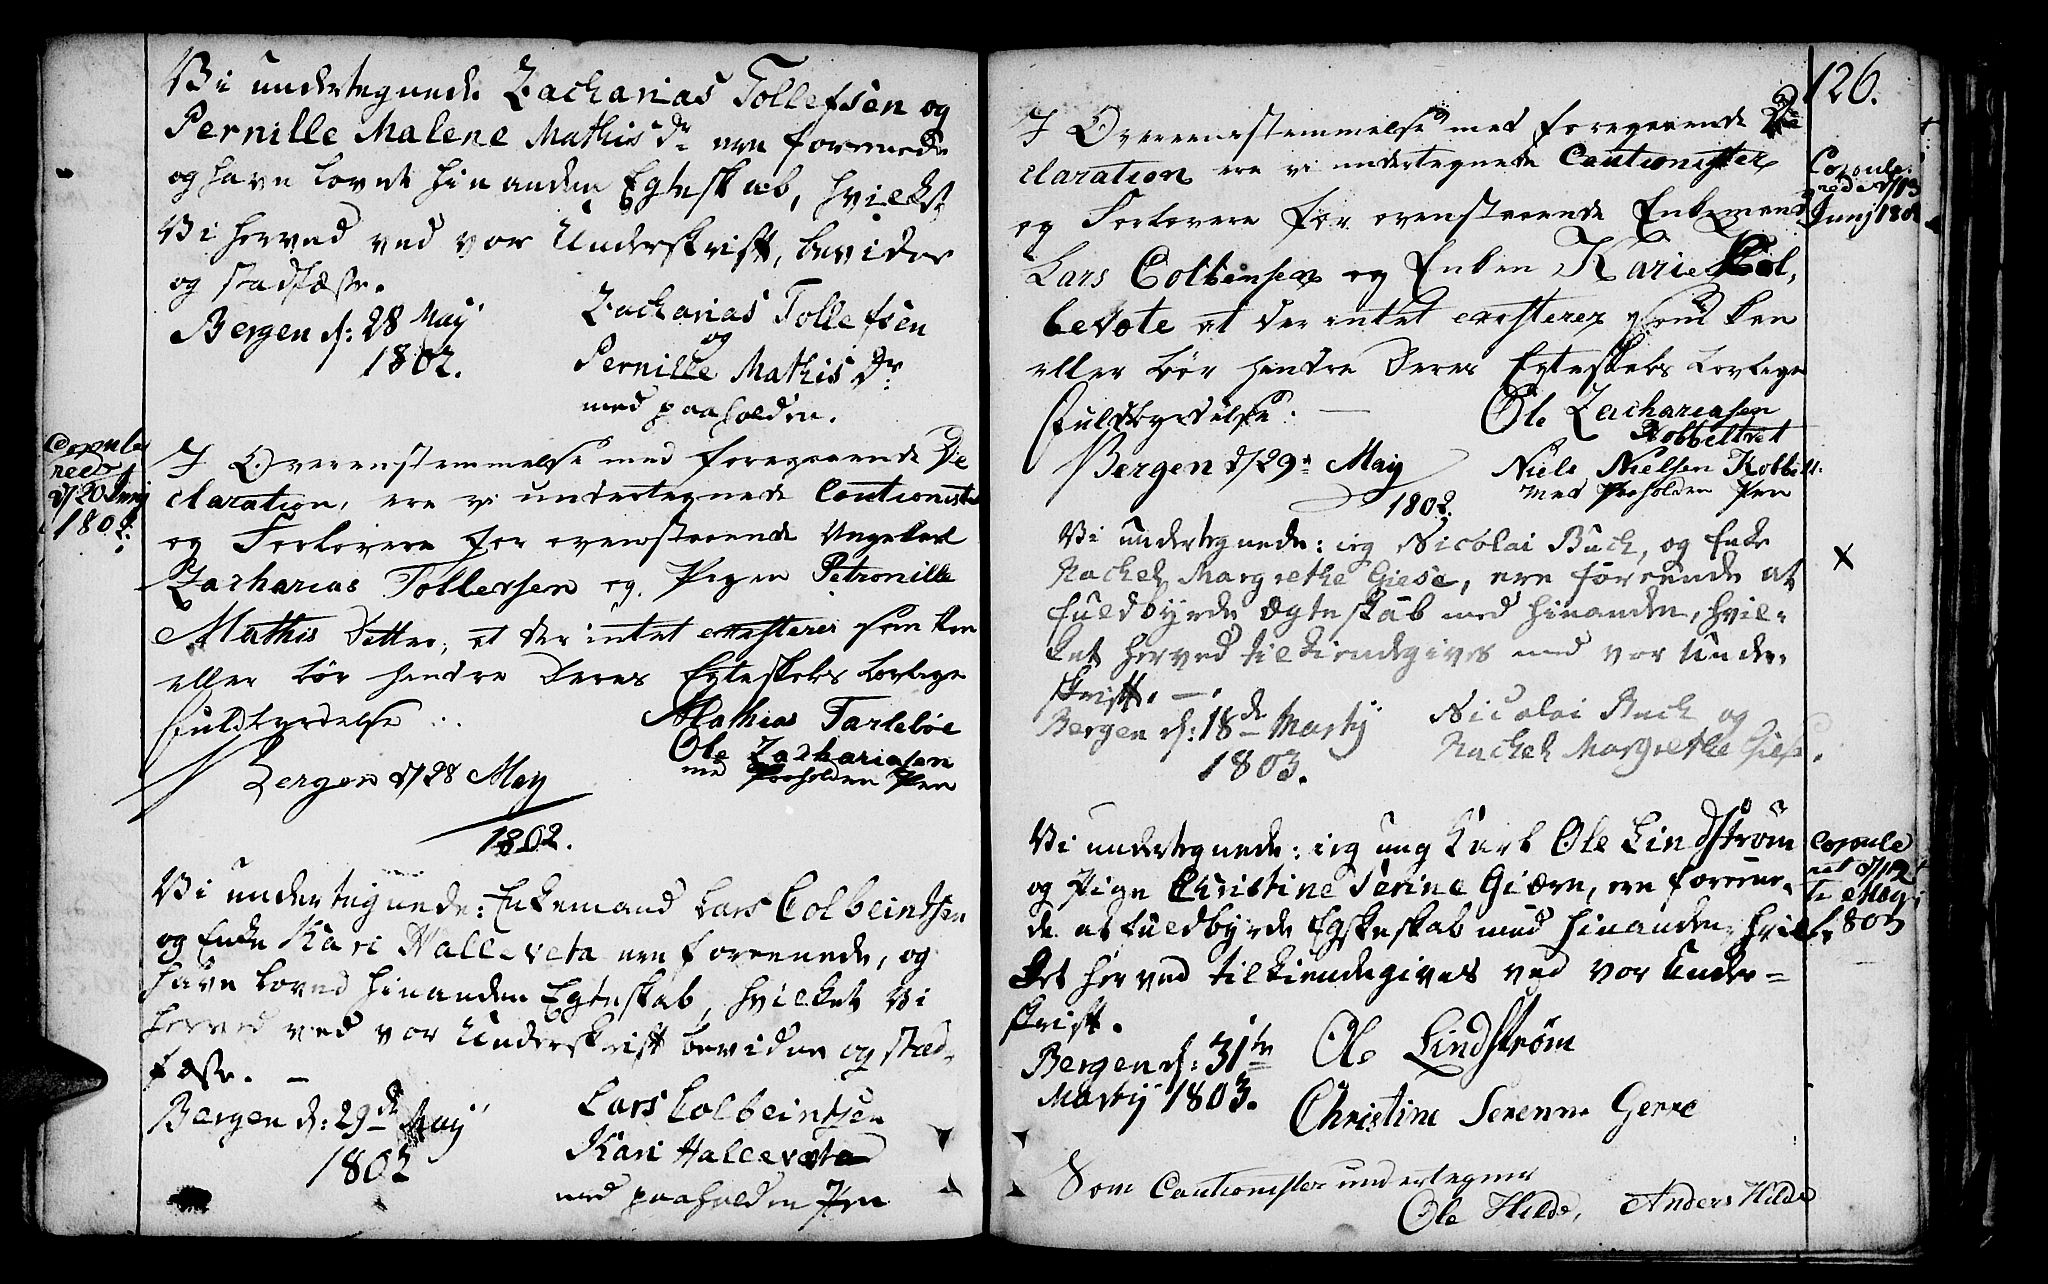 Vi undertegnede Zacharias Tollefsen og
Pernille Malene Mathis Dr ere foreenede
og have lovet hinanden Egteskab, hvilket
Vi herved ved vor Underskrift, bevidner
og stadfæste.
Bergen d: 28 Maij
1802.
Zacharias Tollefsen
og
Pernille Mathis Dr
med paaholden.
Copule
rede
d/20 Junij
1802.
I Overeenstemmelse med foregaaende De
claration, ere vi undertegnede Cautionister
og Forlovere for ovenstaaende Ungekarl
Zacharias Tollevsen og Pigen Petronille
Mathis Datter, at der intet existerer som kan
eller bør hindre Deres Egteskabs Lovlige
Fuldbyrdelse
Mathias Tarlebøe
Ole Zachariasen
med Paaholden Pen
Bergen d/28 May
1802.
Vi undertegnede: Enkemand Lars Colbeintsen
og Enke Kari Halleveta ere foreenede, og
have loved hinanden Egteskab, hvilket Vi
herved ved vor Underskrift bevidne og stad-
fæste. —
Bergen d: 29de Maij
1802
Lars Colbeintsen
Kari Halleveta
med paaholden Pen
126.
I Overeenstemmelse med foregaaende De
claration ere vi undertegnede Cautionister
og Forlovere for ovenstaaende Enkemand
Lars Colbensen og Enken Karie Hol,
bevote at der intet existerer som kan
eller bør hindre Deres Egteskabs Lovlige
Fuldbyrdelse. —
Copule.
rede d/13
Junj 180
Ole Zachariasen
Kobbeltvet
Bergen d/29de May
1802.
Niels Nielsen Kobbelt:
med Paaholden Pen
Vi undertegnede: jeg Nicolai Buch, og Enke
Rachel Margrethe Giese, ere foreende at
fuldbyrde Ægteskab med hinanden, hvil-
ket herved tilkiendegives med vor Under-
skrift. —
X
Bergen d: 18de Martij
1803.
Nicolai Buch og
Rachel Margrethe Giese.
Vi undertegnede: jeg ung Karl Ole Lindstrøm
og Pige Christine Serine Giærn, ere foreene-
de at fuldbyrde Egteskab med hinanden, hvil-
ket herved tilkiendegives ved vor Under-
skrift.
Copule
ret d/12
te May
1803
Bergen d: 31te
Martij 1803.
Ole Lindstrøm
Christine Serenne Gerre
Som Cautionister undertegner
Ole Hilde, Anders Hilde